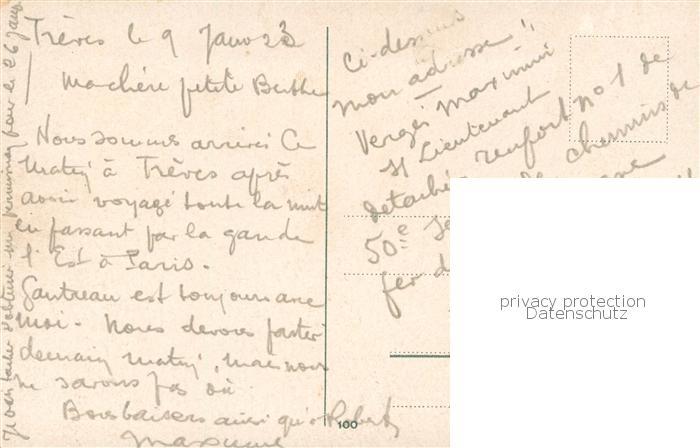 Trèves le 9 Janv 23
Ma chère petite Berthe
Nous sommes arrivés ce
matin à Trèves après
avoir voyagé toute la nuit
en passant par la gare de
l'Est à Paris.
Gautreau est toujours avec
moi. Nous devons partir
demain matin, mais nous
ne savons pas où
Bons baisers ainsi qu'à Robert
Maxime
Je vais tacher d'obtenir une permission pour le 26 Janv
Ci-dessus
mon adresse "
Vergès Maximin
Sr Lieutenant
détaché renfort no 1 de
50e de chemins de
fer
100
privacy protection
Datenschutz